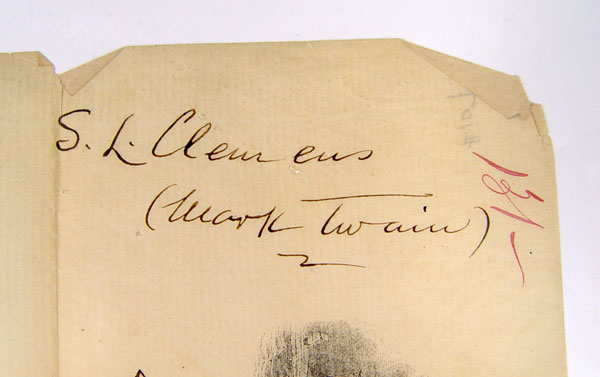 S. L. Clemens
(Mark Twain)